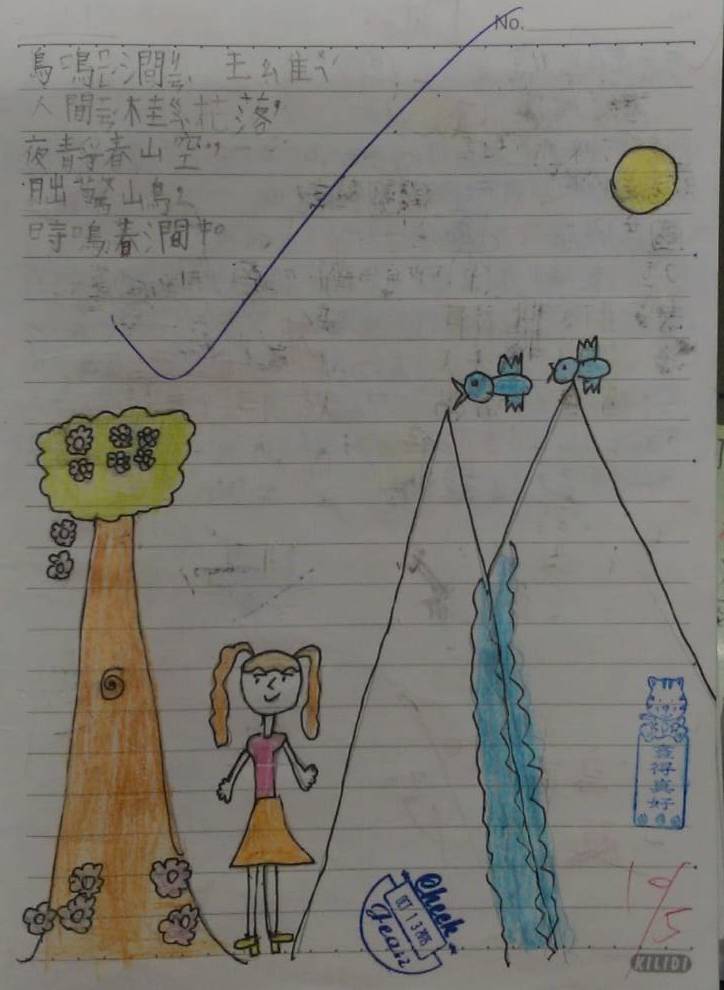 No.
鳥鳴澗 王
人間桂花落,
夜靜春山空,
月出驚山鳥,
時鳴春澗中。
得真好
Check
OCT 13
10/5
KILIDI